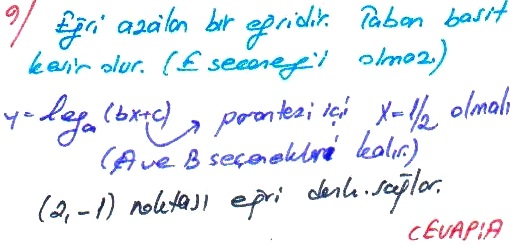 9/ Eğri azalan bir eğridir. Taban basit
kesir olur. (E seçeneği olmaz.)
y = log_a (bx+c) → parantezi içi x = 1/2 olmalı
(A ve B seçenekleri kalır.)
(2,-1) noktası eğri denk. sağlar.
CEVAP: A